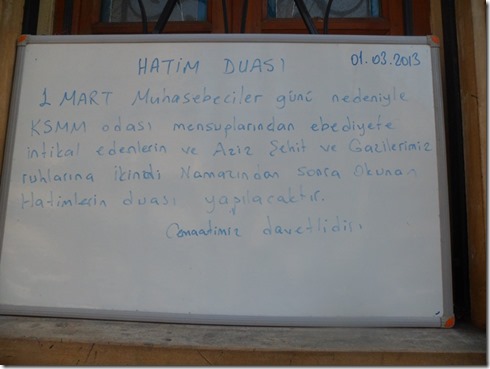 HATİM DUASI
01.03.2013
1 MART Muhasebeciler günü nedeniyle
KSMM odası mensuplarından ebediyete
intikal edenlerin ve Aziz Şehit ve Gazilerimiz
ruhlarına ikindi Namazından sonra Okunan
Hatimlerin duası yapılacaktır.
Cemaatimiz davetlidir